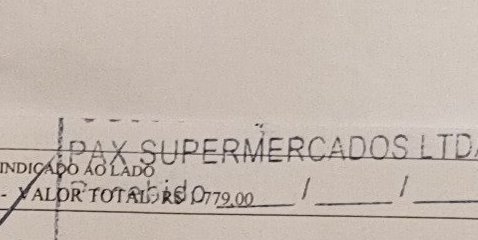 PAX SUPERMERCADOS LTDA
INDICADO AO LADO
- VALOR TOTAL: R$ 779,00 ____/____/____